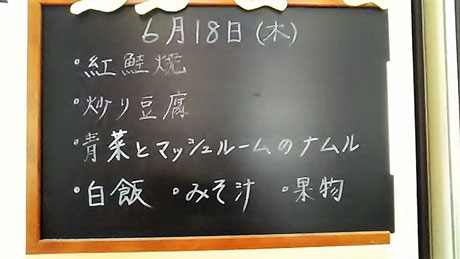 6月18日(木)
・紅鮭焼
・炒り豆腐
・青菜とマッシュルームのナムル
・白飯 ・みそ汁 ・果物